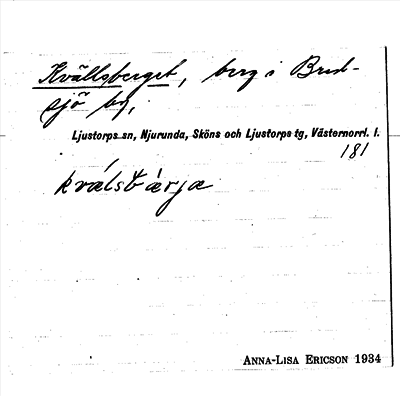 Kvällsberget, berg i Bred-
sjö by,
Ljustorps sn, Njurunda, Sköns och Ljustorps tg, Västernorrl. l.
181
kválstbàrja
ANNA-LISA ERICSON 1934